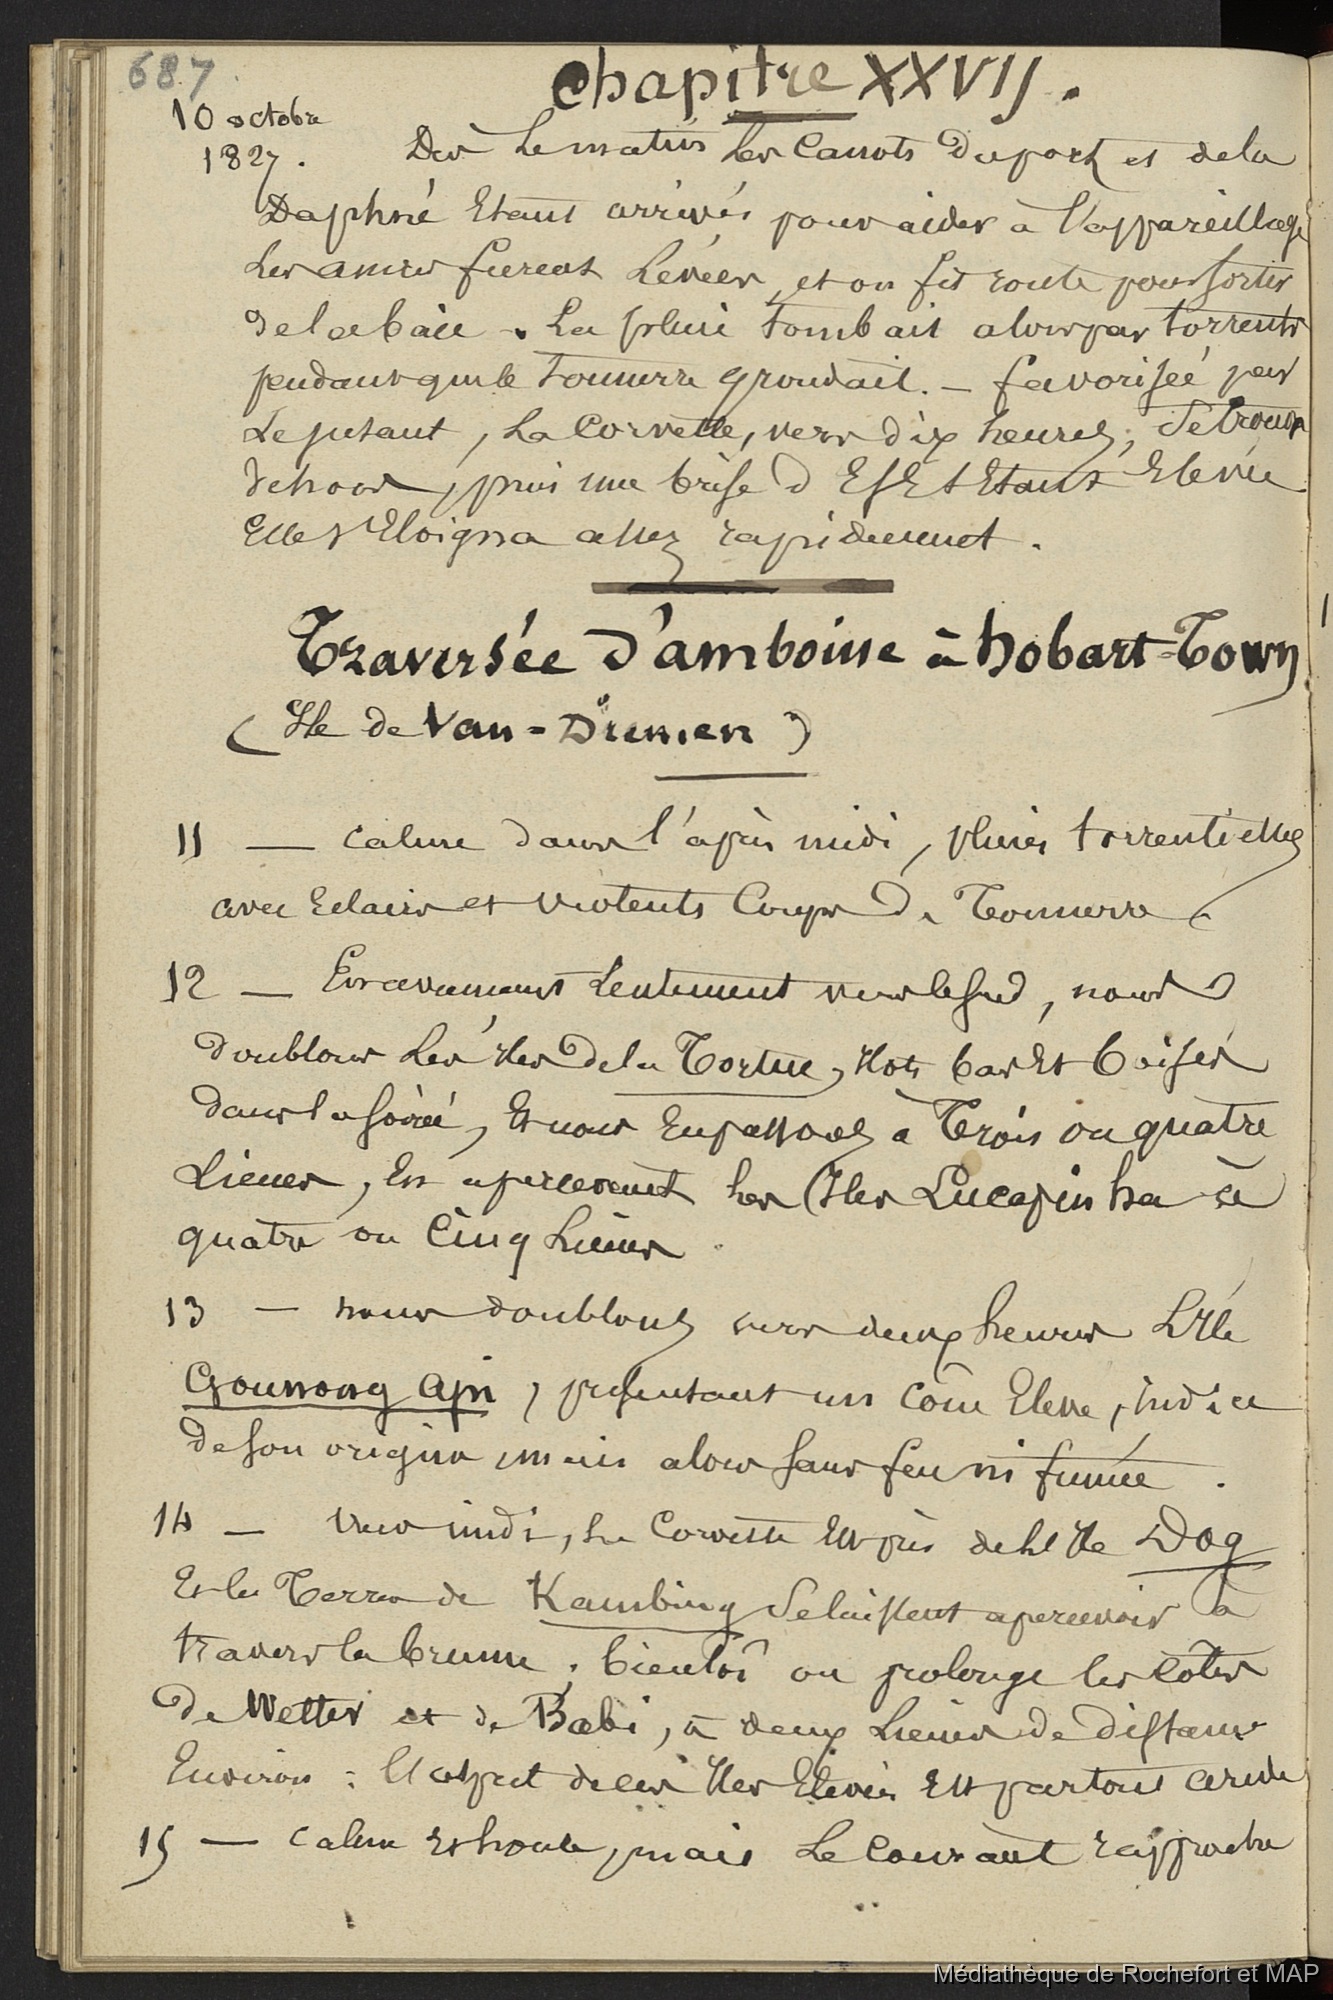 687
Chapitre XXVII.
10 octobre
1827.
Dès le matin les Canots du port et de la
Daphné Etant arrivés pour aider à l'appareillage
les ancres furent Levées, et on fit route pour sortir
de la baie. La pluie tombait alors par torrents
pendant que le tonnerre grondait. — favorisée par
Le jusant, la Corvette, vers dix heures, se trouva
dehors, puis une brise d'ESE s'Etant Elevée
Elle s'Eloigna assez rapidement.
Traversée d'amboine à hobart-Town
(Ile de Van-Diemen)
11 — calme dans l'après midi, pluies torrentielles
avec Eclairs et violents Coups de Tonnerre.
12 — En avançant Lentement vers le sud, nous
doublons les îles de la Tortue, îlots bas Et boisés
dans la soirée, Et nous En passons à Trois ou quatre
Lieues, En apercevant les Iles Lucapinha à
quatre ou Cinq Lieues.
13 — nous doublons vers deux heures L'Ile
Gounong Api, présentant un cône Eleve, indice
de son origine, mais alors sans feu ni fumée.
14 — Vers midi, la Corvette Est près de L'Ile Dog
Et les Terres de Kambing se laissent apercevoir à
travers la brume. bientôt on prolonge les côtes
de Wetter et de Babi, à deux Lieues de distance
Environ : L'aspect de ces Iles Elevées Est partout aride
15 — calme Et houle, mais Le Courant rapproche
Médiathèque de Rochefort et MAP